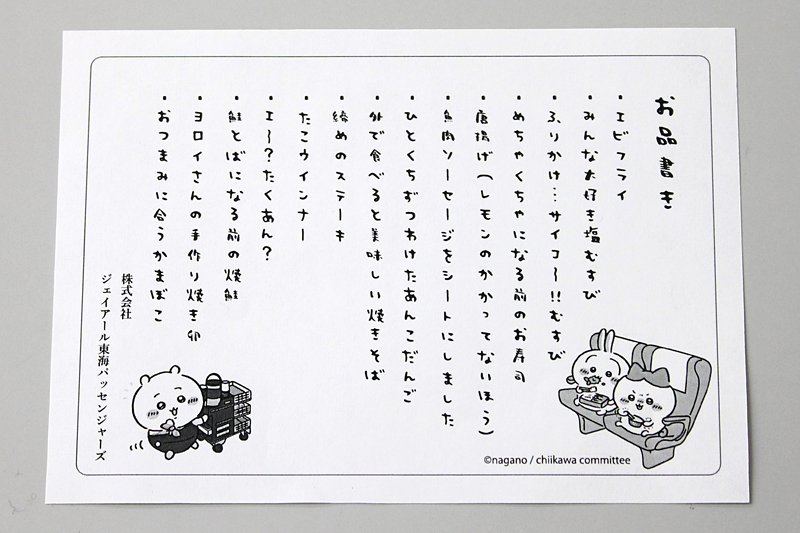 お品書き
・エビフライ
・みんな大好き塩むすび
・ふりかけ…サイコ〜!!むすび
・めちゃくちゃになる前のお寿司
・唐揚げ(レモンのかかってないほう)
・魚肉ソーセージをシートにしました
・ひとくちずつわけたあんこだんご
・外で食べると美味しい焼きそば
・締めのステーキ
・たこウインナー
・エ〜?たくあん?
・鮭とばになる前の焼鮭
・ヨロイさんの手作り焼き卵
・おつまみに合うかまぼこ
株式会社
ジェイアール東海パッセンジャーズ
©nagano / chiikawa committee